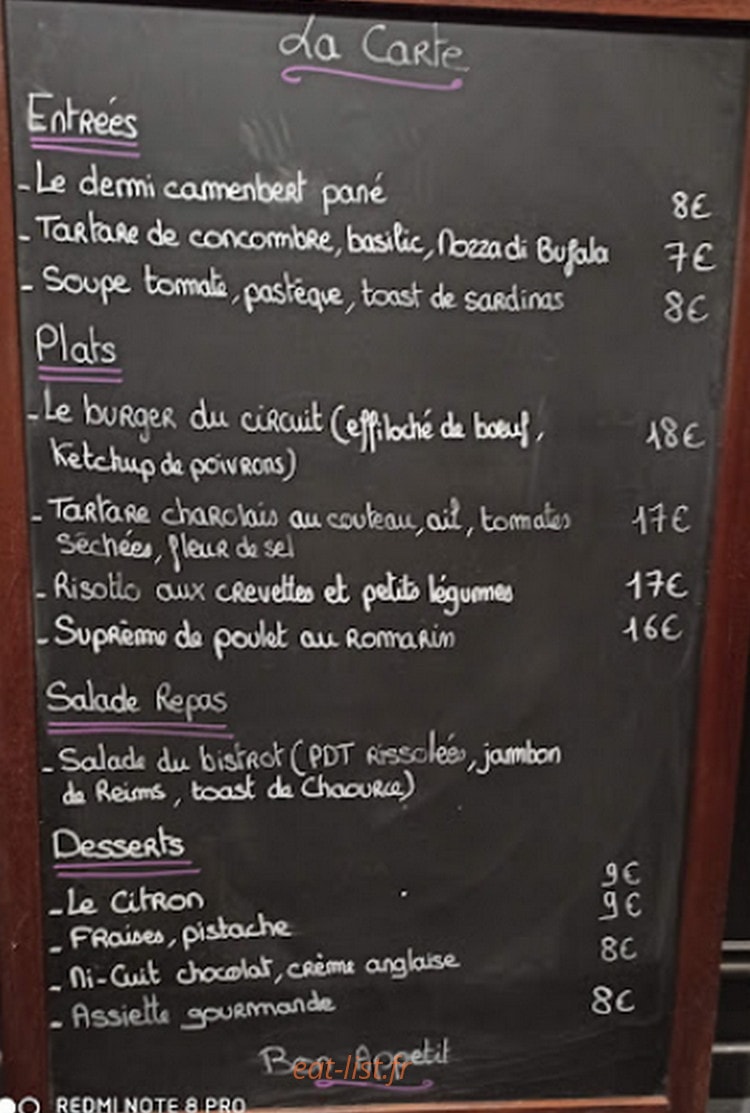 La Carte
Entrées
- Le demi camenbert pané 8€
- Tartare de concombre, basilic, Mozza di Bufala 7€
- Soupe tomate, pastèque, toast de sardinas 8€
Plats
- Le burger du circuit (effiloché de bœuf, 18€
Ketchup de poivrons)
- Tartare charolais au couteau, ail, tomates 17€
Séchées, fleur de sel
- Risotto aux crevettes et petits légumes 17€
- Suprême de poulet au Romarin 16€
Salade Repas
- Salade du bistrot (PDT Rissolées, jambon
de Reims, toast de Chaource)
Desserts
- Le Citron 9€
- Fraises, pistache 9€
- Mi-Cuit chocolat, crème anglaise 8€
- Assiette gourmande 8€
Bon Appetit
eat-list.fr
REDMI NOTE 8 PRO